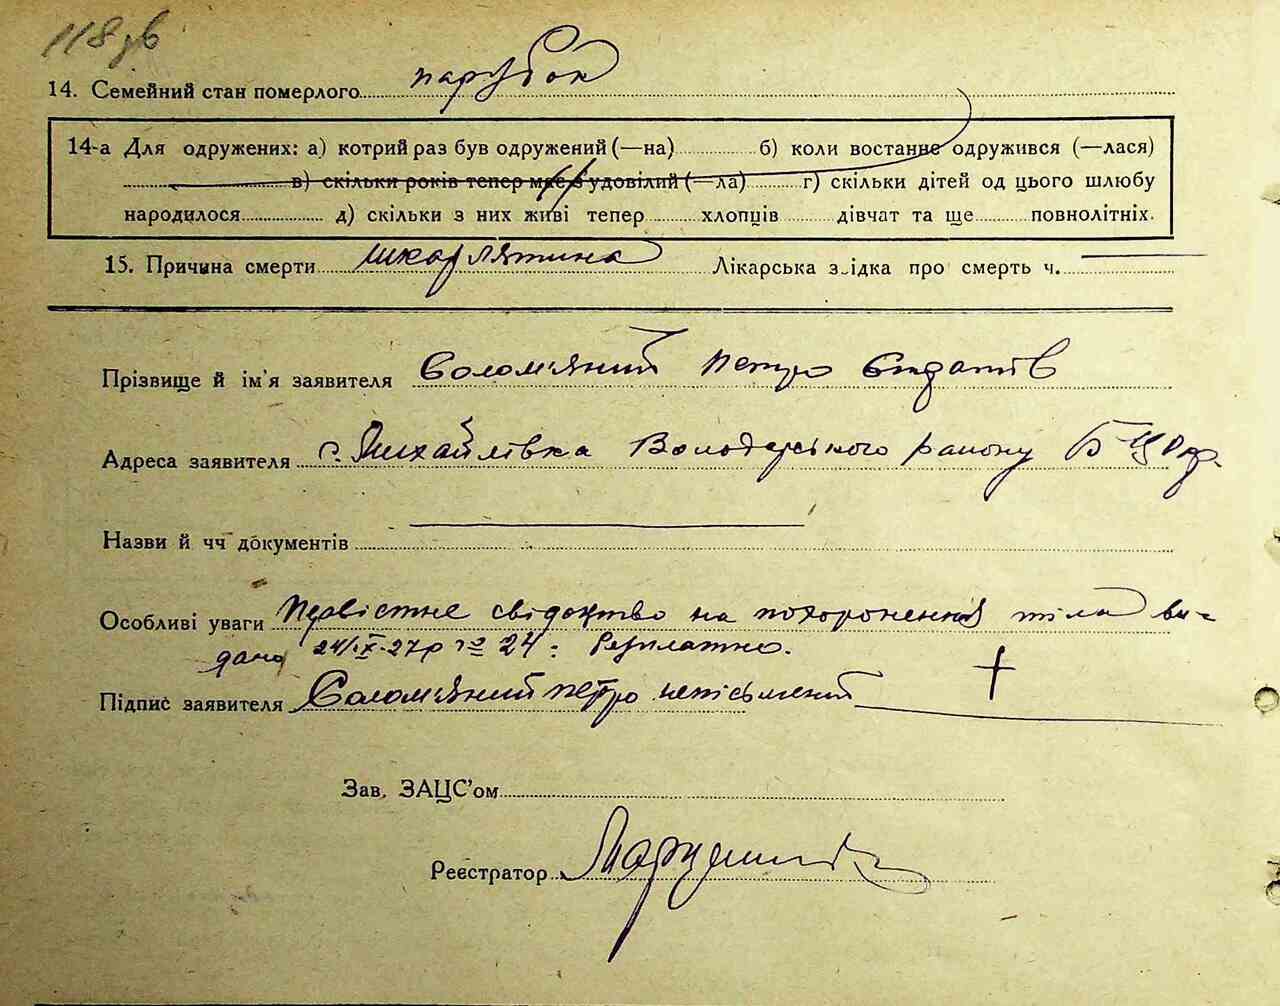 118 зв
14. Семейний стан померлого парубок
14-а Для одружених: а) котрий раз був одружений (—на) б) коли востаннє одружився (—лася)
в) скільки років тепер має з удовілий (—ла) г) скільки дітей од цього шлюбу
народилося д) скільки з них живі тепер хлопців дівчат та ще повнолітніх.
15. Причина смерти шкарлятина Лікарська з ідка про смерть ч.
Прізвище й ім'я заявителя Солом'яний Петро
Адреса заявителя с. Михайлівка Володарського району БЦ Окр.
Назви й чч документів
Особливі уваги Первістне свідоцтво на похоронення тіла ви-
дано 24/IX-27р за 24. Безплатно.
Підпис заявителя Солом'яний Петро неписьмений +
Зав. ЗАЦС'ом
Реєстратор